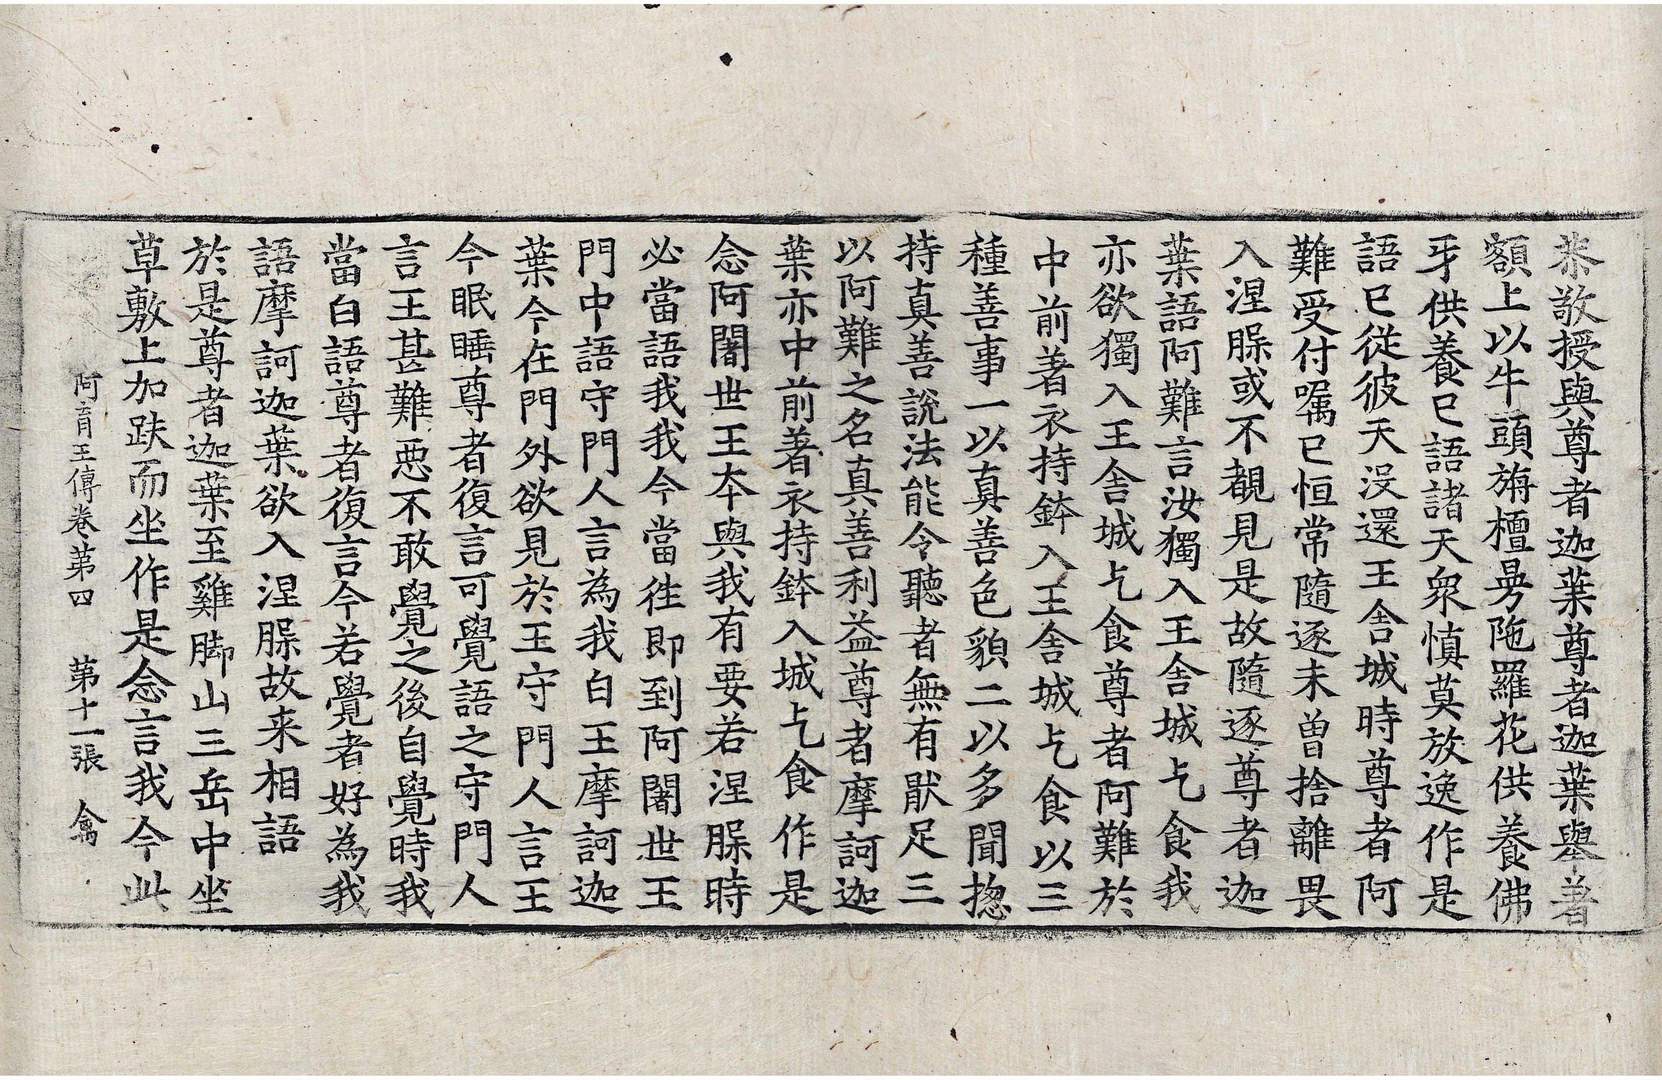 恭敬授與尊者迦葉尊者迦葉舉著
額上以牛頭旃檀曼陁羅花供養佛
牙供養已語諸天衆慎莫放逸作是
語已從彼天没還王舍城時尊者阿
難受付嘱已恒常隨逐未曾捨離畏
入涅臊或不覩見是故隨逐尊者迦
葉語阿難言汝獨入王舍城乞食我
亦欲獨入王舍城乞食尊者阿難於
中前著衣持鉢入王舍城乞食以三
種善事一以真善色貌二以多聞揔
持真善說法能令聽者無有猒足三
以阿難之名真善利益尊者摩訶迦
葉亦中前著衣持鉢入城乞食作是
念阿闍世王夲與我有要若涅臊時
必當語我我今當往即到阿闍世王
門中語守門人言為我白王摩訶迦
葉今在門外欲見於王守門人言王
今眠睡尊者復言可覺語之守門人
言王甚難惡不敢覺之後自覺時我
當白語尊者復言今若覺者好為我
語摩訶迦葉欲入涅臊故来相語
於是尊者迦葉至雞脚山三岳中坐
草敷上加趺而坐作是念言我今此
阿育王傳卷第四　第十一張　禽